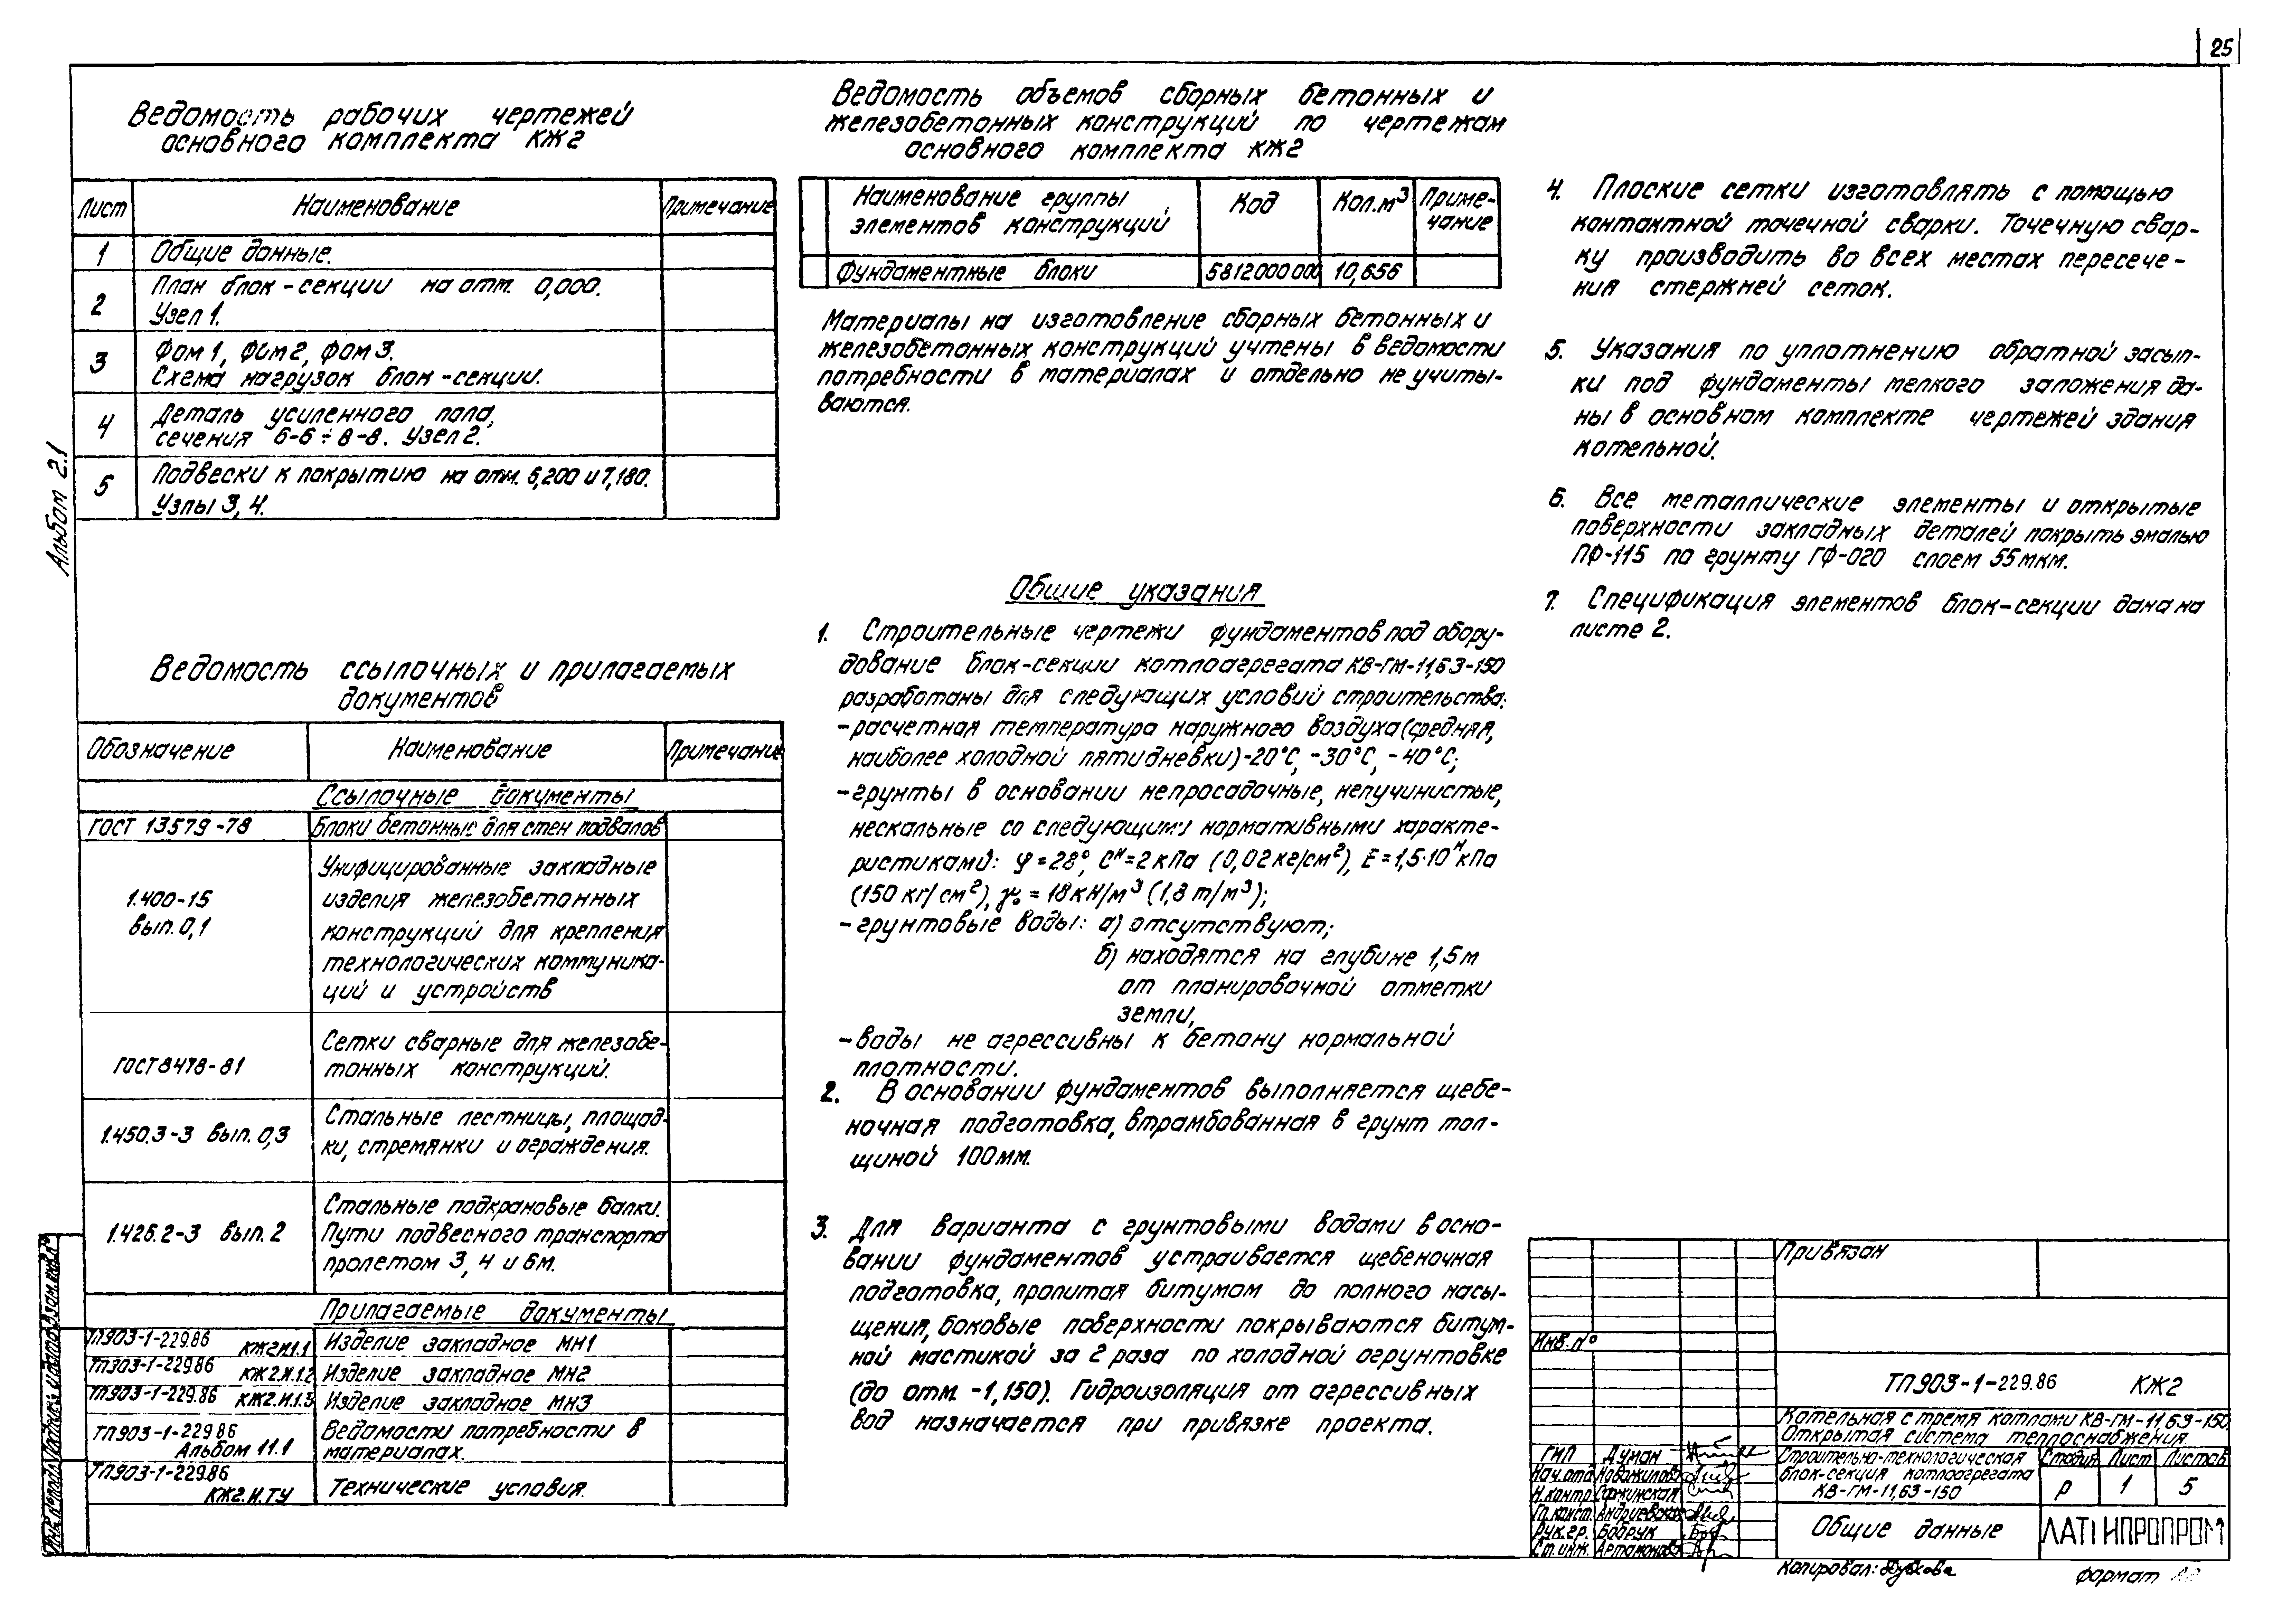 25
Альбом 2.1
Ведомость рабочих чертежей
основного комплекта КЖ2
Лист Наименование Примечание
1 Общие данные.
2 План блок-секции на отм. 0,000.
Узел 1.
3 Фом 1, Фом 2, Фом 3.
Схема нагрузок блок-секции.
4 Деталь усиленного пола,
сечения 6-6÷8-8. Узел 2.
5 Подвески к покрытию на отм. 6,200 и 7,180.
Узлы 3, 4.
Ведомость ссылочных и прилагаемых
документов
Обозначение Наименование Примечание
Ссылочные документы
ГОСТ 13579-78 Блоки бетонные для стен подвалов
1.400-15
вып. 0,1
Унифицированные закладные
изделия железобетонных
конструкций для крепления
технологических коммуника-
ций и устройств
ГОСТ 8478-81
Сетки сварные для железобе-
тонных конструкций.
1.450.3-3 вып. 0,3
Стальные лестницы, площад-
ки, стремянки и ограждения.
1.426.2-3 вып. 2
Стальные подкрановые балки.
Пути подвесного транспорта
пролетом 3, 4 и 6м.
Прилагаемые документы
ТП903-1-229.86 КЖ2.И.1.1 Изделие закладное МН1
ТП903-1-229.86 КЖ2.И.1.2 Изделие закладное МН2
ТП903-1-229.86 КЖ2.И.1.3 Изделие закладное МН3
ТП903-1-229.86
Альбом 11.1
Ведомости потребности в
материалах.
ТП903-1-229.86
КЖ2.И.ТУ
Технические условия.
Ведомость объемов сборных бетонных и
железобетонных конструкций по чертежам
основного комплекта КЖ2
Наименование группы
элементов конструкций
Код Кол.м³ Приме-
чание
Фундаментные блоки 5812000000 10,656
Материалы на изготовление сборных бетонных и
железобетонных конструкций учтены в ведомости
потребности в материалах и отдельно не учиты-
ваются.
Общие указания
1. Строительные чертежи фундаментов под обору-
дование блок-секции котлоагрегата КВ-ГМ-11,63-150
разработаны для следующих условий строительства:
-расчетная температура наружного воздуха (средняя,
наиболее холодной пятидневки) -20°С, -30°С, -40°С;
-грунты в основании непросадочные, непучинистые,
нескальные со следующими нормативными характе-
ристиками: φ=28°, Сᴴ=2кПа (0,02кг/см²), Е=1,5·10⁴кПа
(150 кг/см²), γ₀=18кН/м³ (1,8 т/м³);
-грунтовые воды: а) отсутствуют;
б) находятся на глубине 1,5м
от планировочной отметки
земли,
-воды не агрессивны к бетону нормальной
плотности.
2. В основании фундаментов выполняется щебе-
ночная подготовка, втрамбованная в грунт тол-
щиной 100мм.
3. Для варианта с грунтовыми водами в осно-
вании фундаментов устраивается щебеночная
подготовка, пропитая битумом до полного насы-
щения, боковые поверхности покрываются битум-
ной мастикой за 2 раза по холодной огрунтовке
(до отм. -1,150). Гидроизоляция от агрессивных
вод назначается при привязке проекта.
4. Плоские сетки изготовлять с помощью
контактной точечной сварки. Точечную свар-
ку производить во всех местах пересече-
ния стержней сеток.
5. Указания по уплотнению обратной засып-
ки под фундаменты мелкого заложения да-
ны в основном комплекте чертежей здания
котельной.
6. Все металлические элементы и открытые
поверхности закладных деталей покрыть эмалью
ПФ-115 по грунту ГФ-020 слоем 55мкм.
7. Спецификация элементов блок-секции дана на
листе 2.
Привязан
Инв. №
ТП903-1-229.86 КЖ2
Котельная с тремя котлами КВ-ГМ-11,63-150.
Открытая система теплоснабжения.
ГИП Думан
Нач.отд. Новожилова
Н.контр. Саржинская
Гл.конст.
Рук.гр. Бодрук
Ст.инж. Артамонова
Строительно-технологическая
блок-секция котлоагрегата
КВ-ГМ-11,63-150
Стадия Лист Листов
Р 1 5
Общие данные
ЛАТГИПРОПРОМ
Копировал: Дубкова
Формат